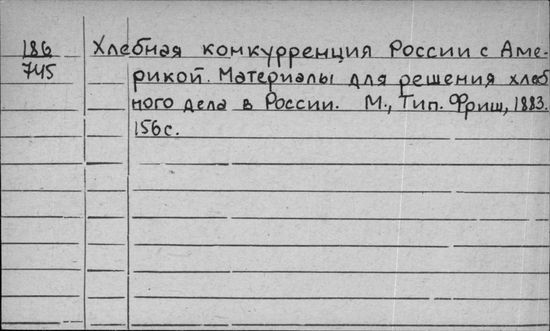 186 Хлебная конкурренция России с Аме-
745 рикой. Материалы для решения хлеб
ного дела в России. М., Тип. Фриш, 1883.
156с.